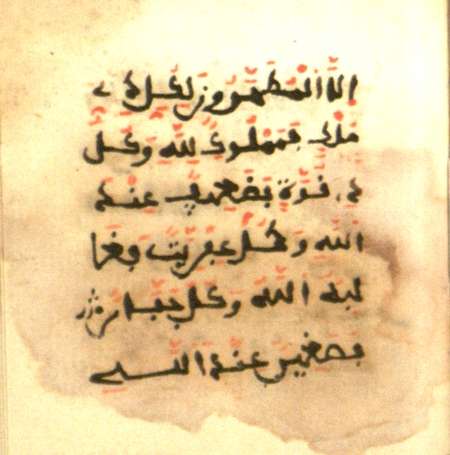 الَّا الْمُطَهَّرُونَ لكل ذي
ملك فمملوك لله وكل
ذي قوة فضعيف عند
الله وكل عفريت فغا
لبه الله وكل جبار
فصغير عند الله